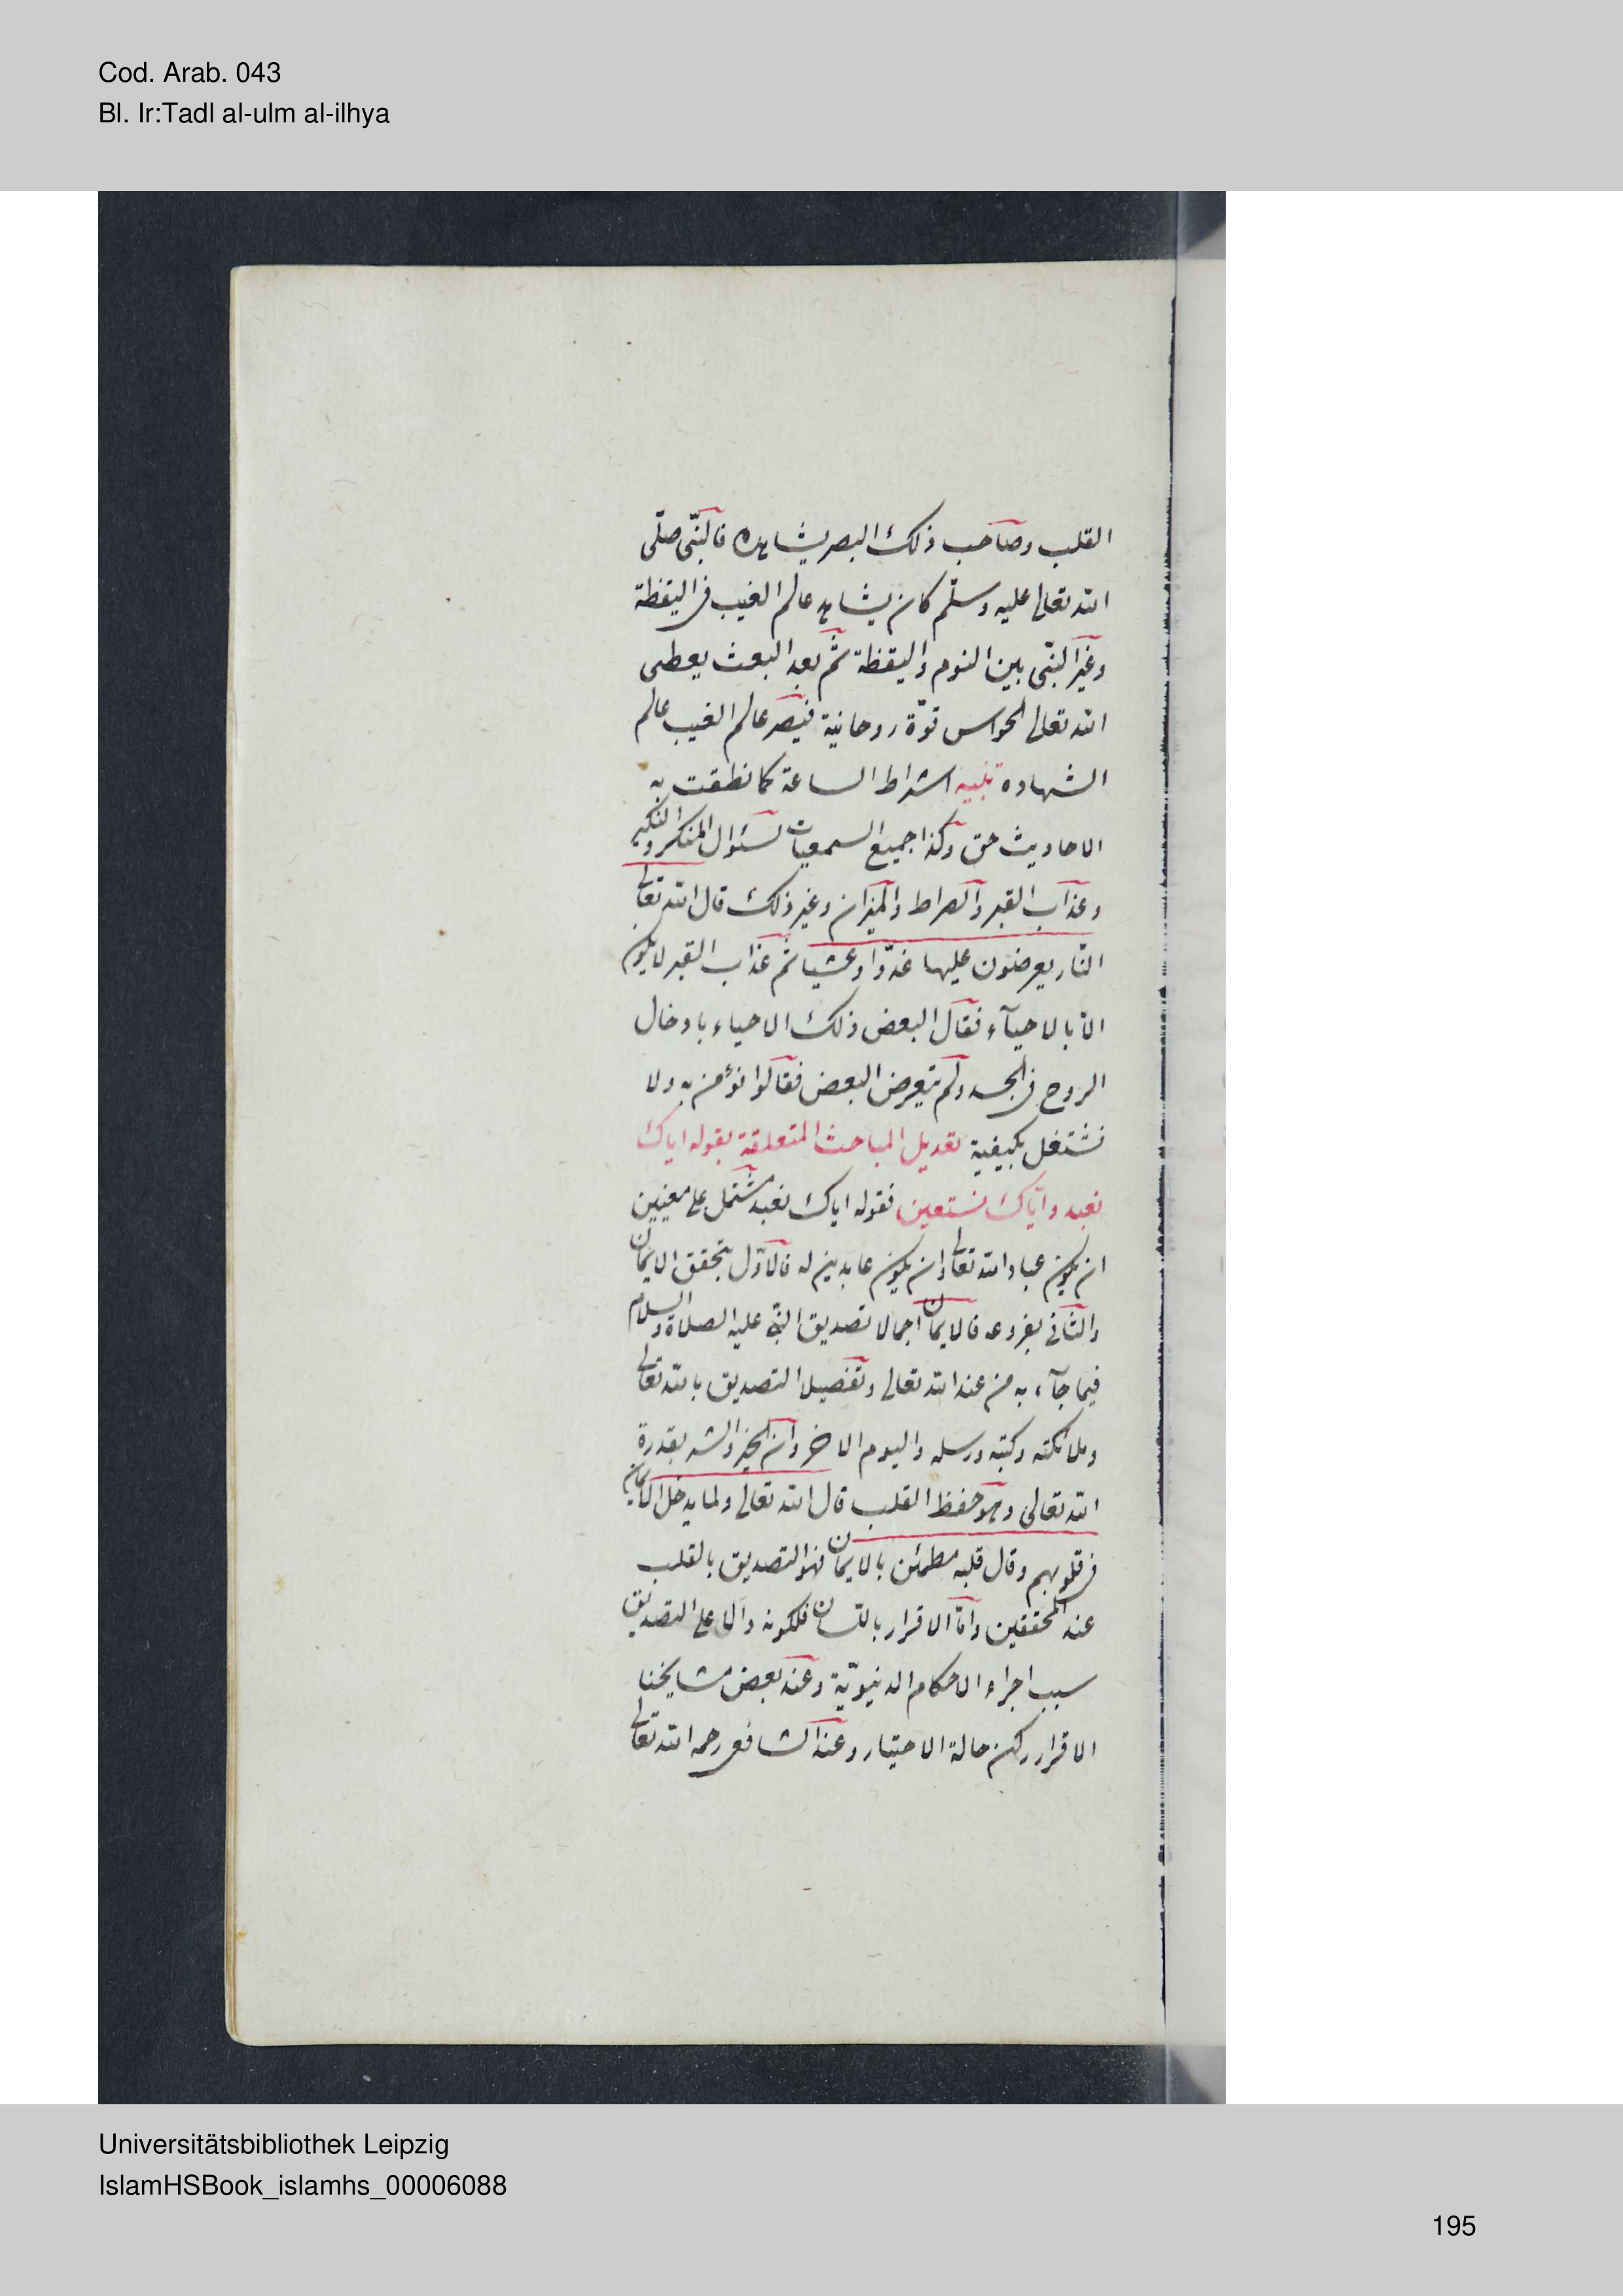 Cod. Arab. 043
Bl. Ir:Tadl al-ulm al-ilhya
القلب وصاحب ذلك البصر يشاهده فالنبّي صلّى
الله تعالى عليه وسلّم كان يشاهد عالم الغيب في اليقظة
وغير النبّي بين النوم واليقظة ثمّ بعد البعث يعطى
الله تعالى الحواس قوّة روحانية فيبصر عالم الغيب عالم
الشهادة تنبيه اشراط الساعة كما نطقت به
الاحاديث حق وكذا جميع السمعيات كسئوال المنكر والنكير
وعذاب القبر والصراط والميزان وغير ذلك قال الله تعالى
النار يعرضون عليها غدّوا وعشيا ثم عذاب القبر لا يكون
الّا بالاحيآء فقال البعض ذلك الاحياء بادخال
الروح في الجسد ولم يتعرض البعض فقالوا نؤمن به ولا
نشتغل بكيفية تعديل المباحث المتعلقة بقوله اياك
نعبد وايّاك نستعين فقوله اياك نعبد مشتمل على معنيين
ان يكون عباد الله تعالى وان يكون عابدين له فالاوّل يتحقق الايمان
والثاني بفروعه فالايمان اجمالا تصديق النبّي عليه الصلاة والسلام
فيما جآء به من عند الله تعالى وتفصيلا التصديق بالله تعالى
وملائكته وكتبه ورسله واليوم الاخر وان الخير والشر بقدرة
الله تعالى وهو حفظ القلب قال الله تعالى ولما يدخل الايمان
في قلوبهم وقال قلبه مطمئن بالايمان فهو التصديق بالقلب
عند المحققين وامّا الاقرار باللسان فلكونه دالا على التصديق
سبب اجراء الاحكام الدنيويّة وعند بعض مشايخنا
الاقرار ركن حالة الاختيار وعند الشافعي رحمه الله تعالى
Universitätsbibliothek Leipzig
IslamHSBook_islamhs_00006088
195